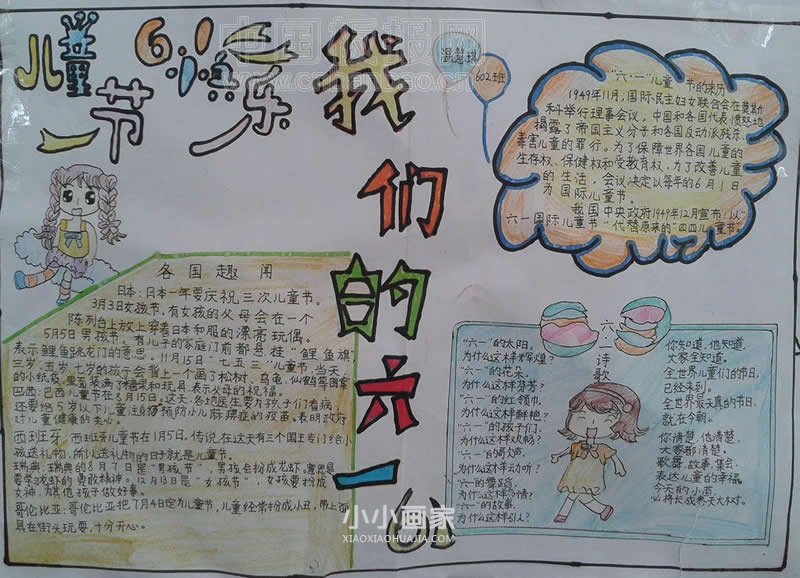 儿童节
6.1快乐
我们的六一
6.1
温慧琪
602班
"六·一"儿童节的来历
1949年11月,国际民主妇女联合会在莫斯
科举行理事会议,中国和各国代表愤怒地
揭露了帝国主义分子和各国反动派残杀
毒害儿童的罪行。为了保障世界各国儿童的
生存权、保健权和受教育权,为了改善儿童
的生活,会议决定以每年的6月1日
为国际儿童节。
我国中央政府1949年12月宣布:以"
六一国际儿童节"代替原来的"四四儿童节"。
各国趣闻
日本:日本一年要庆祝三次儿童节。
3月3日女孩节,有女孩的父母会在一个
陈列台上放上穿着日本和服的漂亮玩偶。
5月5日男孩节。有儿子的家庭门前都悬挂"鲤鱼旗"
表示鲤鱼跳龙门的意思。11月15日"七五三"儿童节,当天
三岁、五岁、七岁的孩子会背上一个画了松树、乌龟、仙鹤等图案
的小纸袋,里面装满了糖果和玩具,表示父母的祝福。
巴西:巴西儿童节在8月15日。这天,各地医生要为孩子们看病,
还要给5岁以下儿童注射预防小儿麻痹症的疫苗。表明政府
对儿童健康的关心。
西班牙:西班牙儿童节在1月5日。传说,在这天有三个国王专门给小
孩送礼物,所以送礼物的日子就是儿童节。
瑞典:瑞典的8月7日是"男孩节",男孩会扮成龙虾。意思是
要学龙虾的勇敢精神。12月13日是"女孩节",女孩要扮成
女神,为其他孩子做好事。
哥伦比亚:哥伦比亚把7月4日定为儿童节,儿童经常扮成小丑,带上面
具在街头玩耍,十分开心。
六一诗歌
"六一"的太阳,
为什么这样辉煌?
"六一"的花朵,
为什么这样芬芳?
"六一"的红领巾,
为什么这样鲜艳?
"六一"的孩子们,
为什么这样欢畅?
"六一"的歌声,
为什么这样动听?
"六一"的舞蹈,
为什么这样多情?
"六一"的故事,
为什么这样引人?
你知道,他知道,
大家全知道。
全世界儿童们的节日,
已经来到。
全世界最天真的节日,
就在今朝。
你清楚,他清楚,
大家都清楚。
歌舞、故事、集会,
表达儿童的幸福。
今天的小苗,
必将长成参天大树。
小小画家
XIAOXIAOHUAJIA.COM